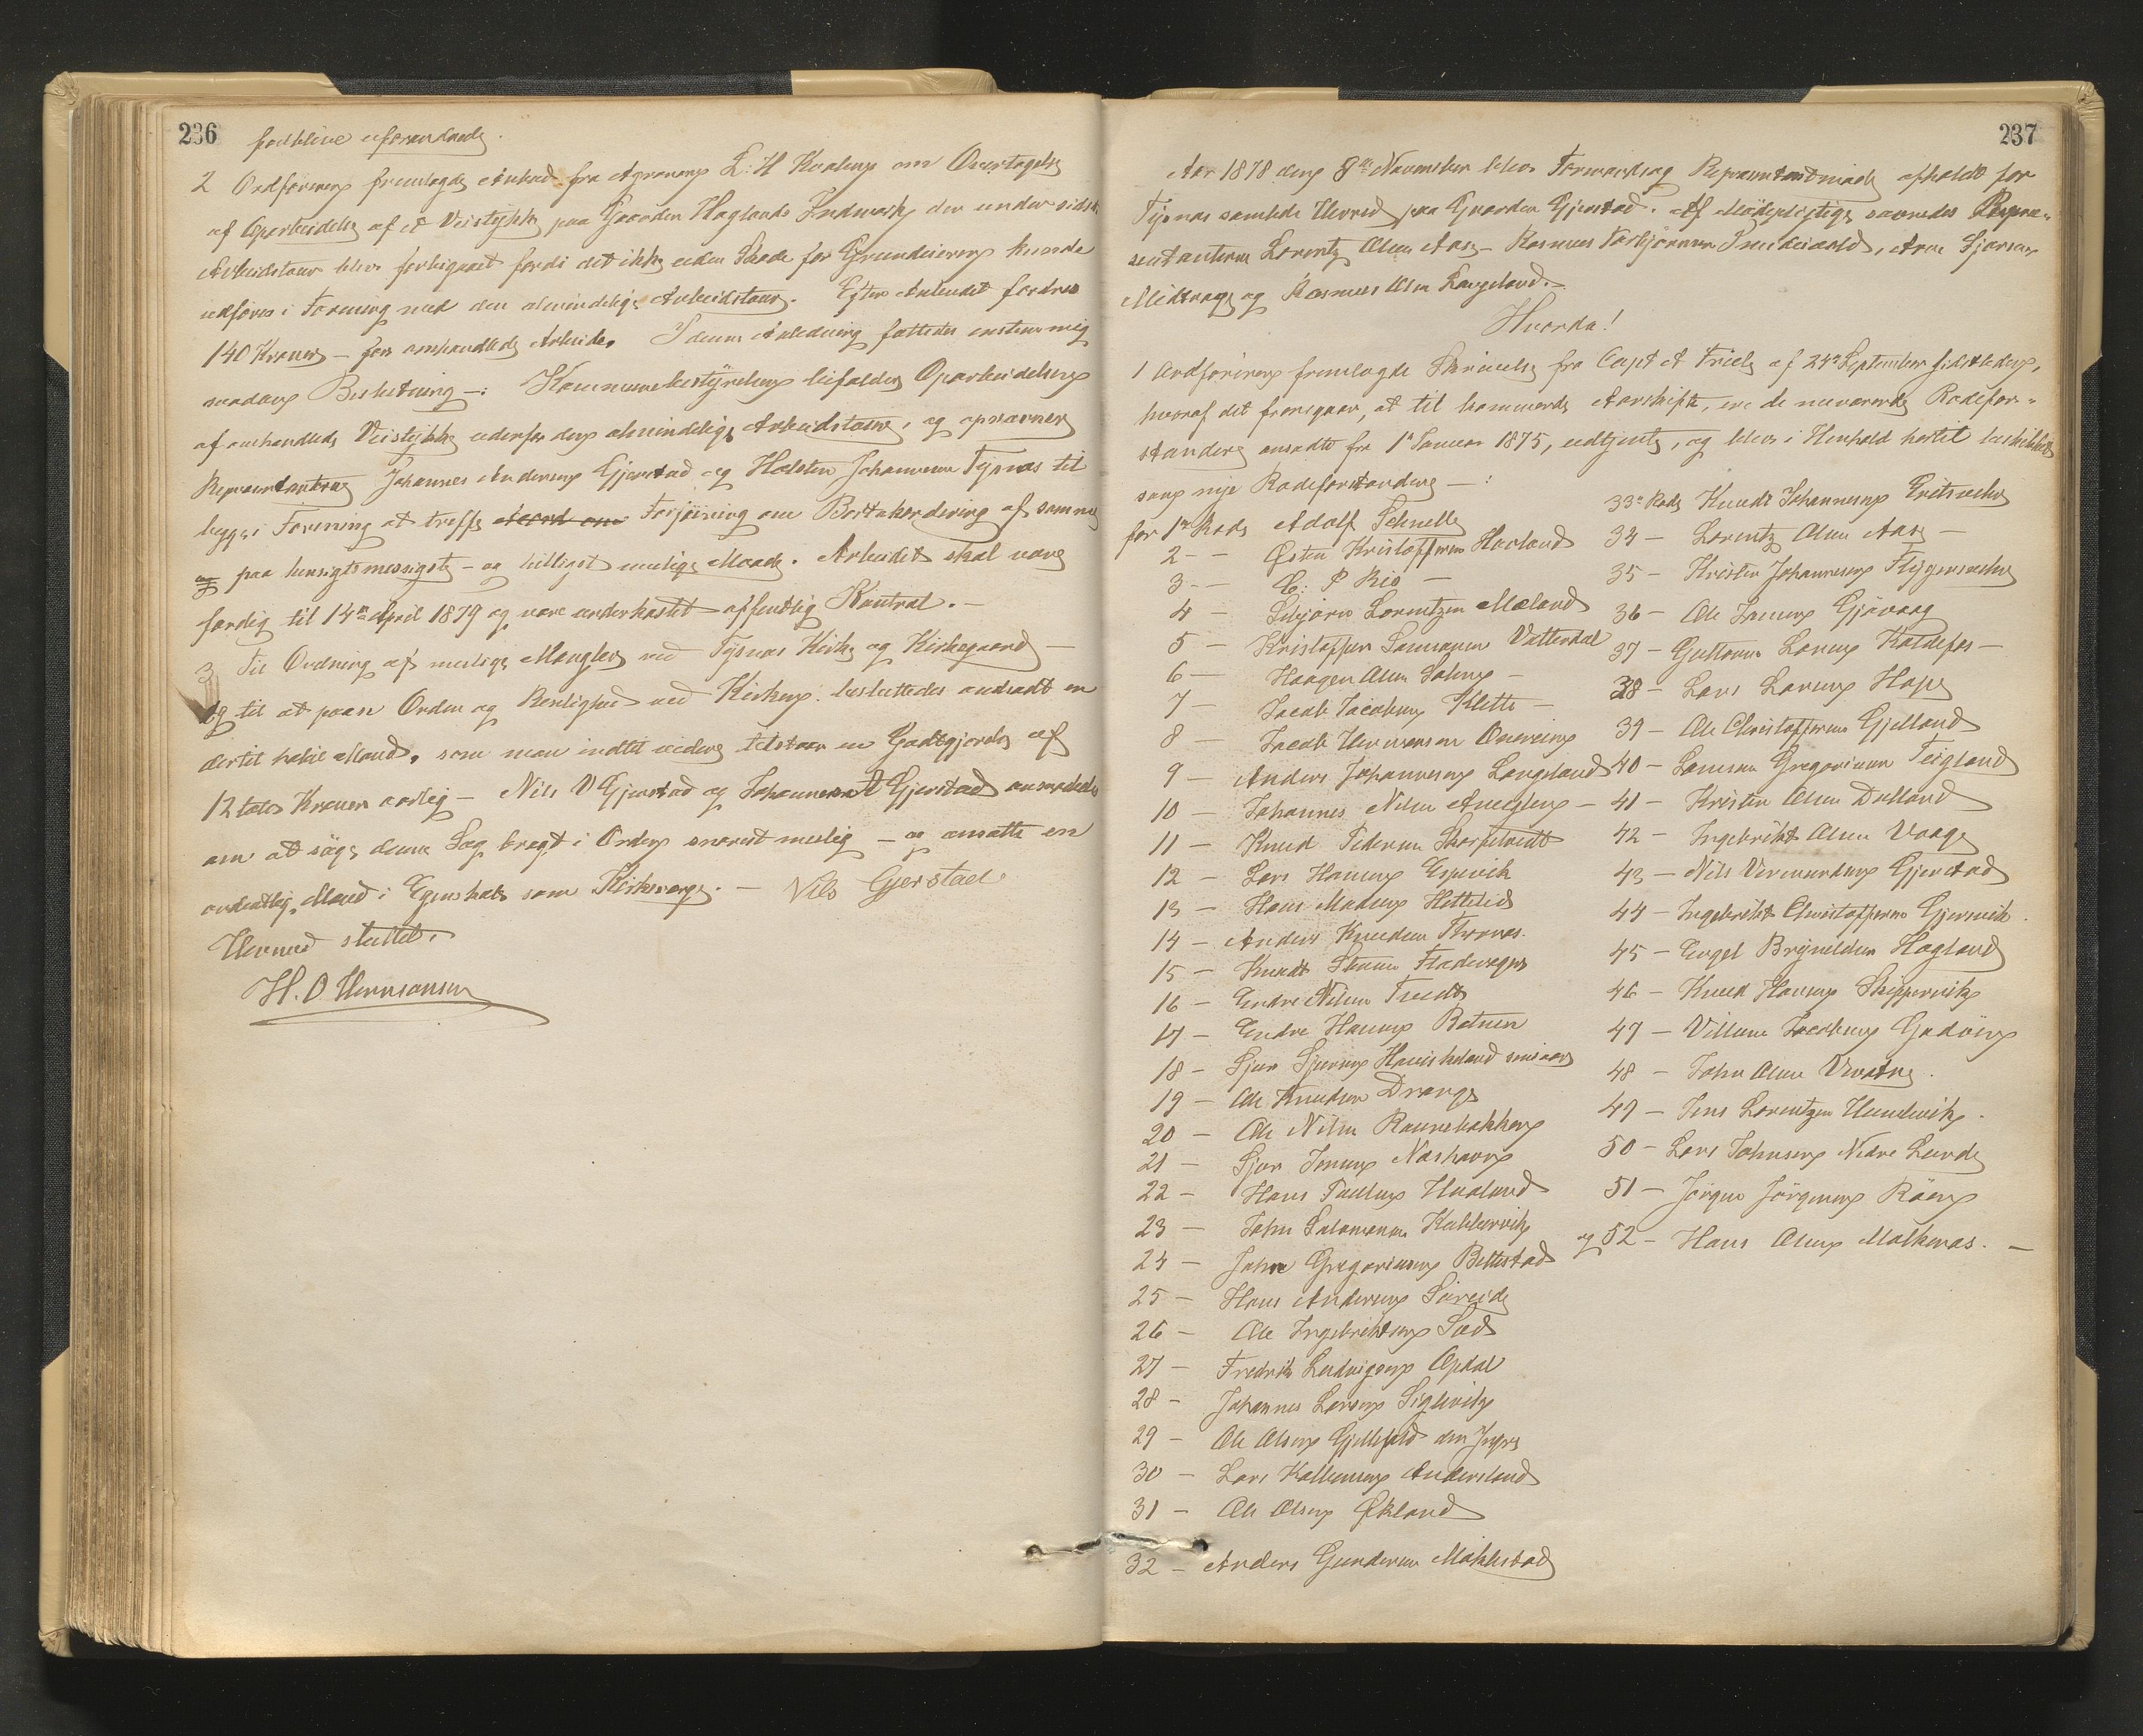 236
forblive uforandret.
2 Ordføreren fremlagde Anbud fra Agronom L: H Kaalaas om Overtagelse
af Oparbeidelse af et Veistykke paa Gaarden Haglands Indmark, der under sidste
Arbeidstour blev forbigaaet fordi det ikke uden Skade for Grundeieren kunde
udføres i Forening med den almindelige Arbeidstour. Efter Anbudet fordres
140 Kroner – for omhandlede Arbeide. I denne Anledning fattedes enstemmig
saadan Beslutning –: Kommunebestyrelsen bifalder Oparbeidelsen
af omhandlede Veistykke udenfor den almindelige Arbeidstour, og opnævner
Repræsentantene Johannes Andersen Gjerstad og Halsten Johannesen Tysnæs til
begge i Forening at treffe Acord om Forføining om Bortakordering af samme
og paa hensigtsmessigste – og billigst mulige Maade. Arbeidet skal være
færdig til 14de April 1879 og være underkastet offentlig Kontrol. –
3 Til Ordning af mulige Mangler ved Tysnæs Kirke og Kirkegaard –
og til at paase Orden og Renlighed ved Kirken besluttedes andsadt en
dertil habil Mand, som man indtil videre tilstaar en Godtgjørelse af
12 tolv Kroner aarlig – Nils V Gjerstad og Johannes A Gjerstad anmodedes
om at søge denne Sag bragt i Orden snarest mulig – og ansatte en
ordentlig Mand i Egenskab som Kirkeværge. – Nils Gjerstad
Hermed sluttet.
H. O Hermansen
237
Aar 1878 den 8de November blev Formandsog Repræsentantmøde afholdt for
Tysnæs samlede Herred paa Gaarden Gjerstad. Af Mødepligtige savnedes Repræ-
sentanterne Lorentz Olsen Aase – Rasmus Torbjørnsen , Arne Sjursen
Midtvaage og Rasmus Olsen Langeland.
Hvorda!
1 Ordføreren fremlagde Skrivelse fra Capt A Friele af 24de September sidstleden,
hvoraf det fremgaar, at til kommende Aarskifte, ere de nuværende Rodefor-
standere ansadte fra 1ste Januar 1875, udtjente, og blev i Henhold hertil beskikket
som nye Rodeforstandere – :
for 1ste Rode Adolf Schnelle
2 – – Østen Kristoffersen Haaland
3 – – C: P Riis –
4 – Sibjørn Lorentzen Mæland
5 – Kristoffer Samsonsen Vatterdal
6 – Haagen Olsen –
7 – Jacob Jacobsen Klette –
8 – Jacob Hermansen Onereim
9 – Anders Johannesen Langeland
10 – Johannes Nilsen –
11 – Knud Pedersen Skarpetvedt
12 – Lars Hansen Espevik
13 – Hans Madsen Hetteleid
14 – Anders Knudsen
15 – Knudt Stensen Fladevegen
16 – Endre Nilsen Tvedt
17 – Endre Hansen Botnen
18 – Sjur Sjursen
19 – Ole Knudsen Drange
20 – Ole Nilsen Raunebakken
21 – Sjur Jensen Næshavn
22 – Hans Paulsen Haaland
23 – John Salomonsen
24 – John Gregoriusen Beltestad
25 – Hans Andersen Søreide
26 – Ole Ingebriktsen Sæd
27 – Fredrik Ludvigsen Opdal
28 – Johannes Larsen Siglevik
29 – Ole Olsen Gjellefald den Yngre
30 – Lars Kolbensen Andersland
31 – Ole Olsen Økland
32 – Anders Gundersen Malkestad
33te Rode Knudt Johannesen
34 – Lorentz Olsen Aase –
35 – Kristen Johannesen Flygensvær
36 – Ole Jansen Gjøvaag
37 – Guttorm Larsen Koldefos –
38 – Lars Larsen Hope
39 – Ole Christoffersen Gjelland
40 – Samson Gregoriusen Teigland
41 – Kristen Olsen Dalland
42 – Ingebrikt Olsen Vaage
43 – Nils Vermundsen Gjerstad
44 – Ingebrikt Christoffersen Gjersvik.
45 – Engel Brynildsen Hagland
46 – Knud Hansen Skippervik
47 – Villum Jacobsen Godøen
48 – John Olsen Vevatne.
49 – Jens Lorentzen Hundevik.
50 – Lars Johnsen Nedre Lunde
51 – Jørgen Jørgensen Røen
og 52 – Hans Olsen Malkenæs. –